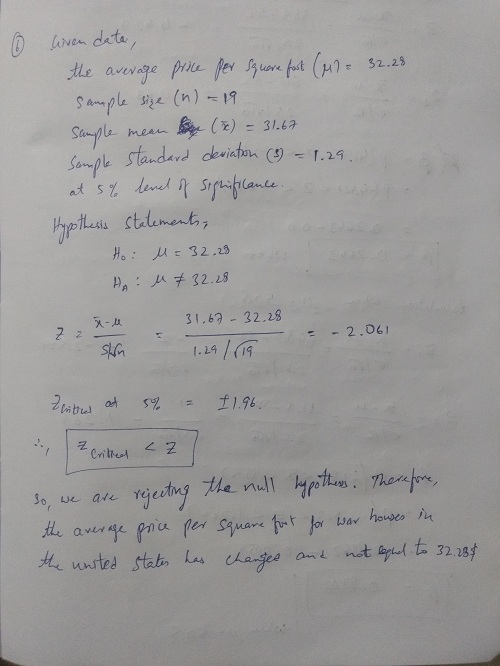 ① Given data,
the average price per square foot (μ) = 32.28
Sample size (n) = 19
Sample mean (x̄) = 31.67
Sample standard deviation (s) = 1.29.
at 5% level of significance.
Hypothesis Statements,
H₀ : μ = 32.28
H_A : μ ≠ 32.28
Z = (x̄-μ)/(s/√n) = (31.67 - 32.28)/(1.29/√19) = -2.061
Z critical at 5% = ±1.96.
∴, Z critical < Z
So, we are rejecting the null hypothesis. Therefore,
the average price per square foot for war houses in
the united states has changes and not equal to 32.28$